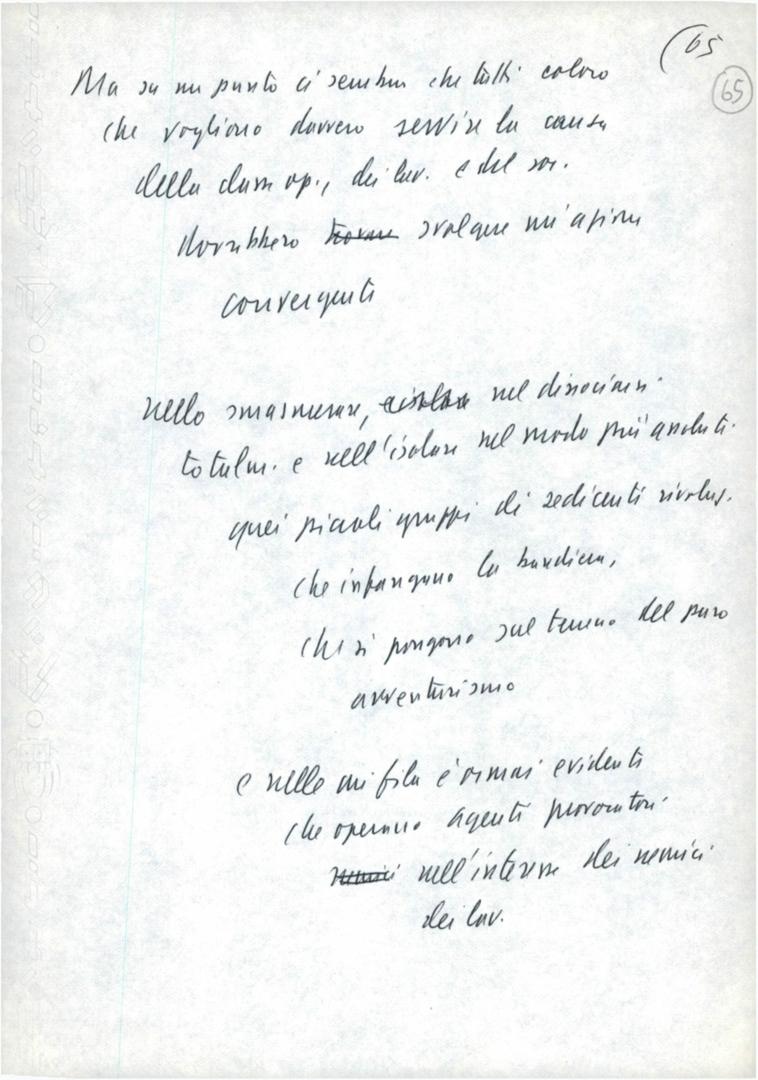 (65
65
Ma su un punto ci sembra che tutti coloro
che vogliono davvero servire la causa
della class op., dei lav. e del soc.
dovrebbero svolgere un'azione
convergente
nello smascherare, nel dissociarsi
totalm. e nell'isolare nel modo più assoluto
quei piccoli gruppi di sedicenti rivoluz.
che infangano la bandiera,
che si pongono sul terreno del puro
avventurismo
e nelle cui fila è ormai evidente
che operano agenti provocatori
nell'interesse dei nemici
dei lav.